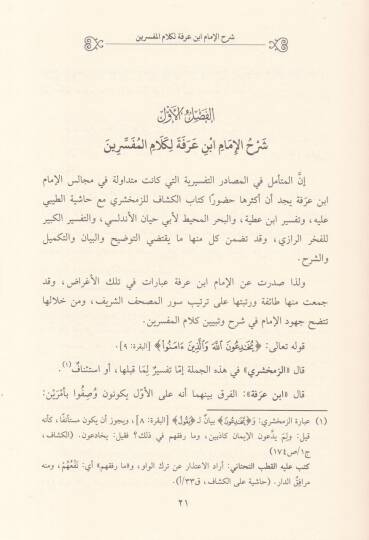 شرح الإمام ابن عرفة لكلام المفسرين
الفصل الأول
شَرْحُ الإِمَامِ ابْنِ عَرَفَةَ لِكَلَامِ المُفَسِّرِينَ
إنَّ المتأمل في المصادر التفسيرية التي كانت متداولة في مجالس الإمام
ابن عرَفة يجد أن أكثرها حضورًا كتاب الكشاف للزمخشري مع حاشية الطيبي
عليه، وتفسير ابن عطية، والبحر المحيط لأبي حيان الأندلسي، والتفسير الكبير
للفخر الرازي، وقد تضمن كل منها ما يقتضي التوضيح والبيان والتكميل
والشرح.
ولذا صدرت عن الإمام ابن عرفة عبارات في تلك الأغراض، وقد
جمعت منها طائفة ورتبتها على ترتيب سور المصحف الشريف، ومن خلالها
تتضح جهود الإمام في شرح وتبيين كلام المفسرين.
قوله تعالى: ﴿يُخَٰدِعُونَ ٱللَّهَ وَٱلَّذِينَ ءَامَنُوا۟﴾ [البقرة: ٩].
قال «الزمخشري» في هذه الجملة إمّا تفسيرٌ لِمَا قبلها، أو استئنافٌ(١).
قال «ابن عرفة»: الفرق بينهما أنه على الأوّل يكونون وُصِفُوا بأمْرَيْن:
(١) عبارة الزمخشري: وَ﴿يُخَٰدِعُونَ﴾ بيانٌ لـ ﴿يَقُولُ﴾ [البقرة: ٨]، ويجوز أن يكون مستأنفًا، كأنه
قيل: ولِمَ يدَّعون الإيمان كاذبين، وما رفقهم في ذلك؟ فقيل: يخادعون. (الكشاف،
ج١/ص١٧٤)
كتب عليه القطب التحتاني: أراد الاعتذار عن ترك الواو، و«ما رفقهم» أي: نَفْعُهُمْ، ومنه
مرافِقُ الدار. (حاشية على الكشاف، ق٣٣/أ).
٢١